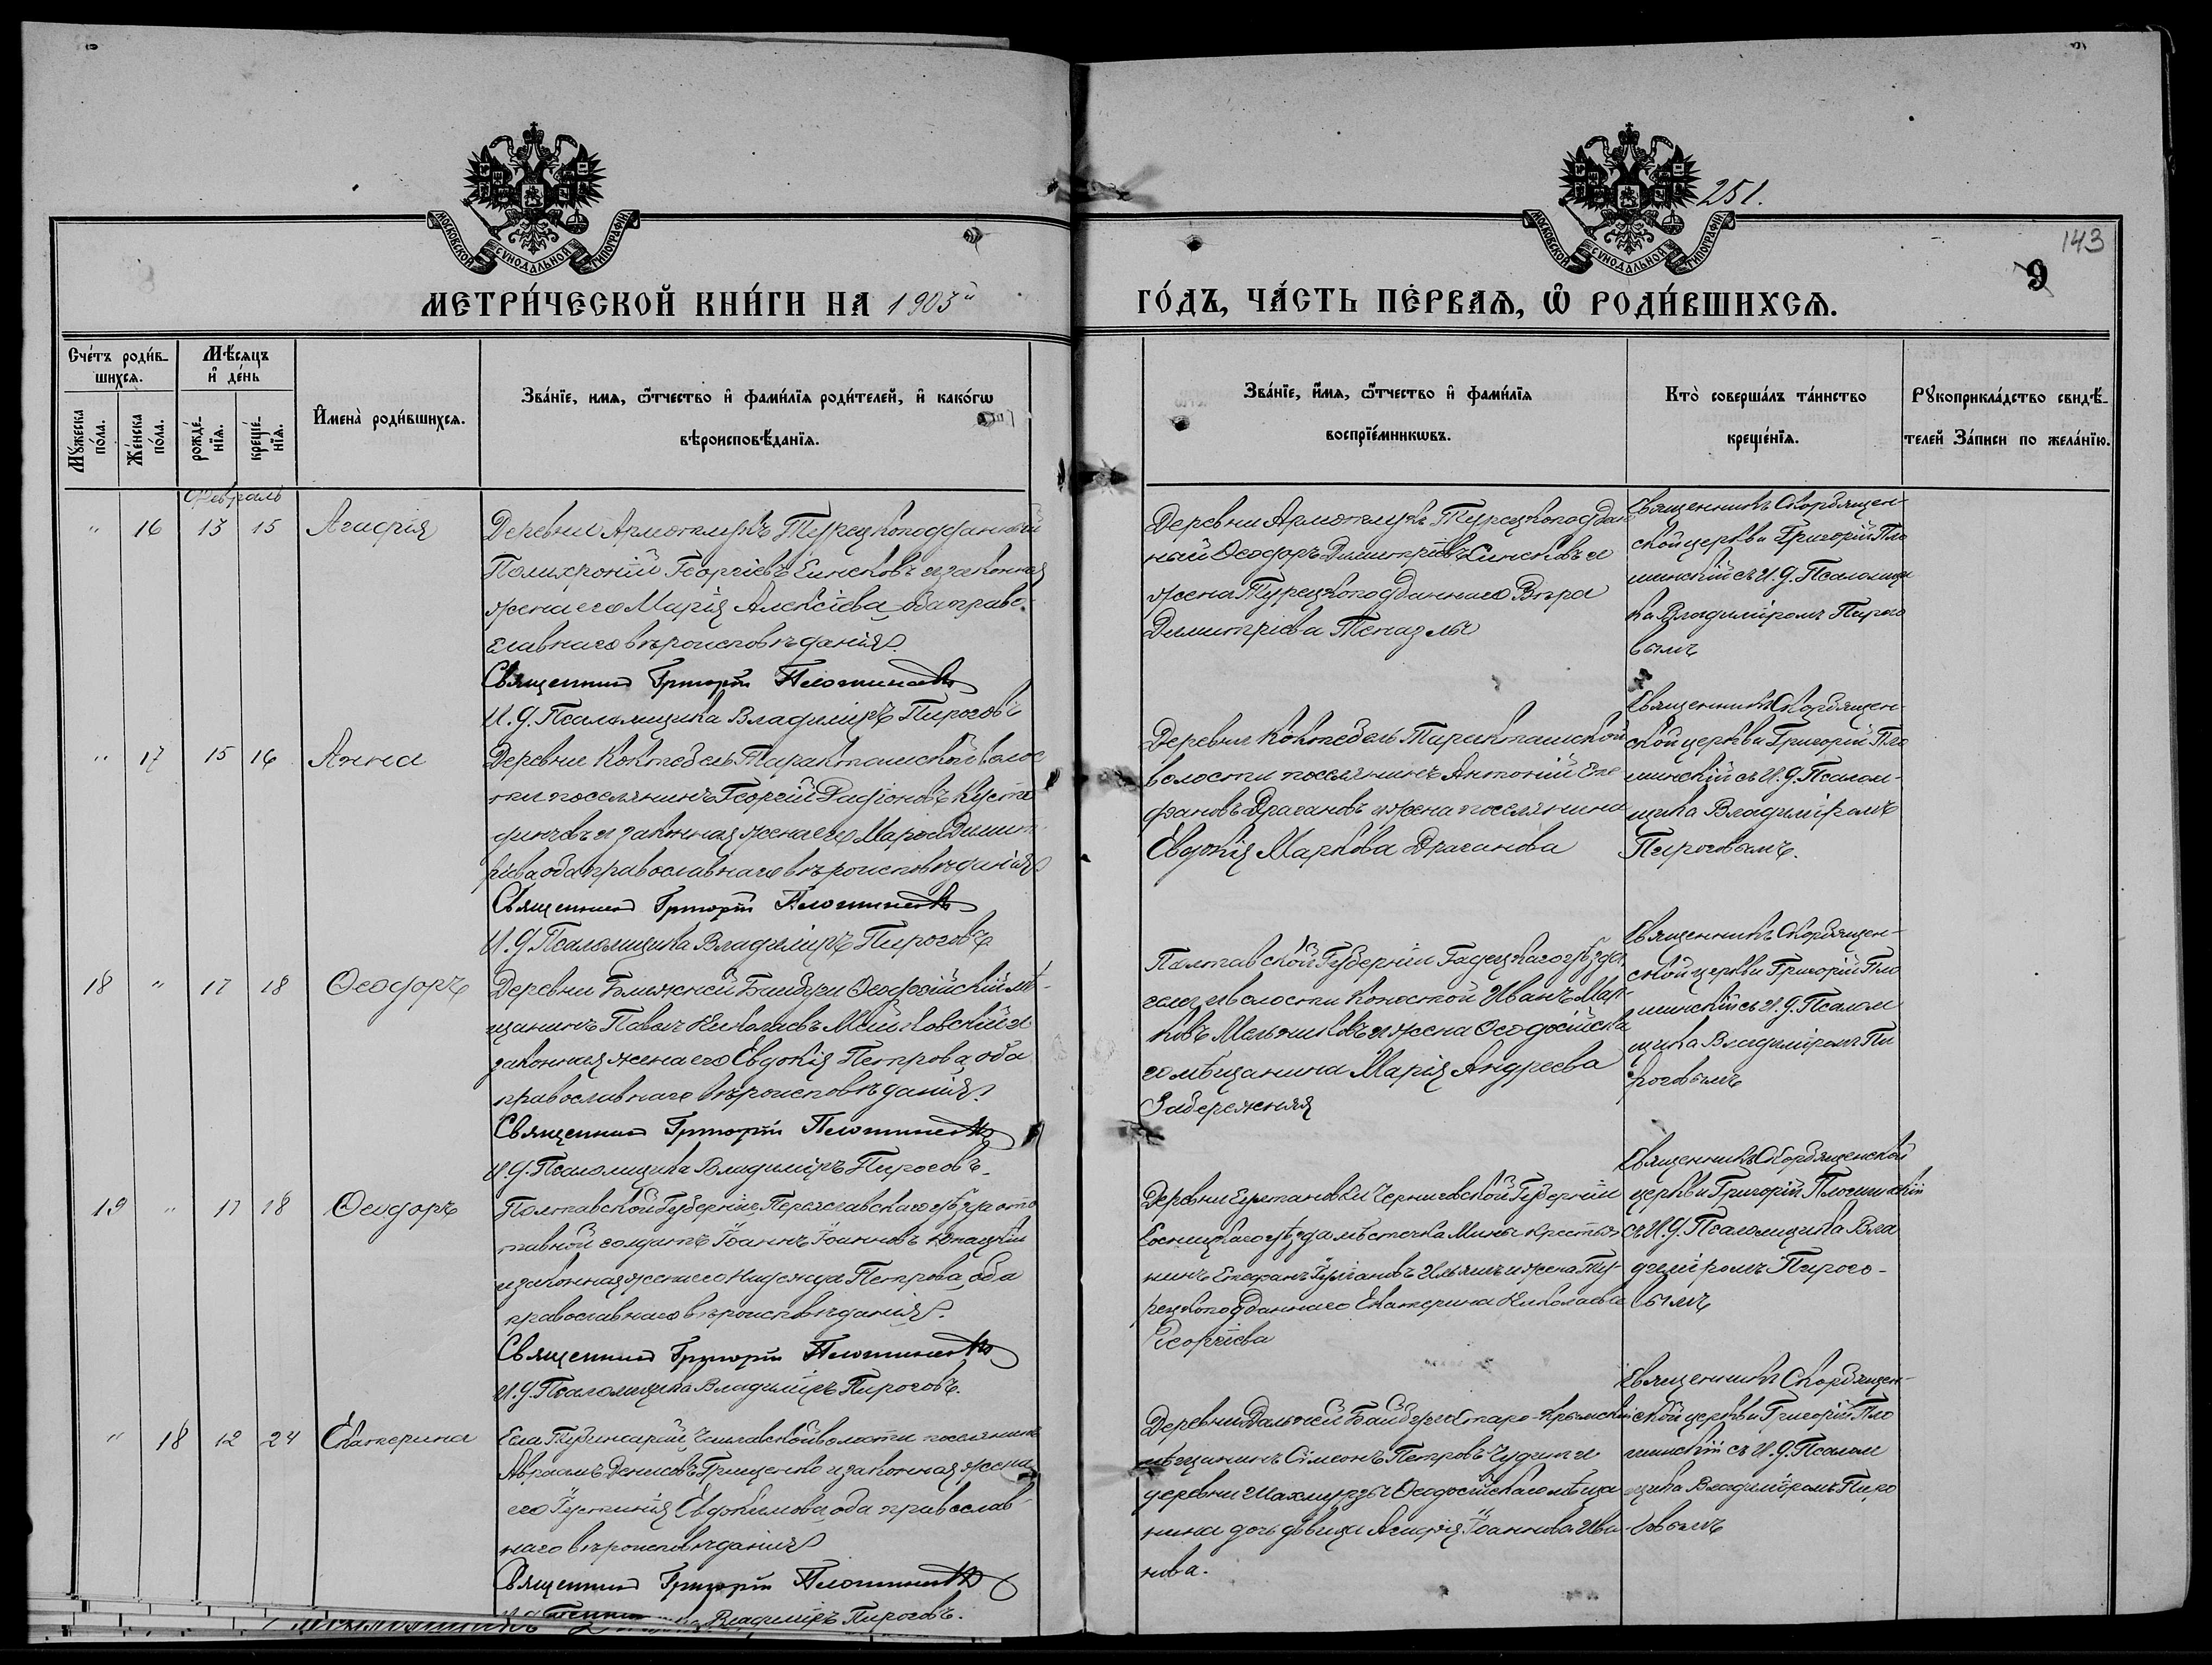 251.
143
9
МОСКОВСКОЙ СѴНОДАЛЬНОЙ ТИПОГРАФІИ
МОСКОВСКОЙ СѴНОДАЛЬНОЙ ТИПОГРАФІИ
МЕТРИ́ЧЕСКОЙ КНИ́ГИ НА 1903й
ГО́ДЪ, ЧА́СТЬ ПЕ́РВАѦ, Ѽ РОДИ́ВШИХСѦ.
Сче́тъ роди́в-
шихсѧ.
Мѣ́сѧцъ
и҆ де́нь
Мꙋ́жеска по́ла.
Же́нска по́ла.
рожде́-
нїѧ.
креще́-
нїѧ.
И҆мена̀ роди́вшихсѧ.
Зва́нїе, имѧ, ѻ҆́тчество и҆ фами́лїѧ роди́телей, и҆ како́гѡ
вѣроисповѣ́данїѧ.
Зва́нїе, и҆́мѧ, ѻ҆́тчество и҆ фами́лїѧ
воспрїе́мникѡвъ.
Кто̀ соверша́лъ та́инство
креще́нїѧ.
Рꙋкоприкла́дство свидѣ́-
телей За́писи по жела́нїю.
Февраль
" 16 13 15 Агафія
Деревни Армотлукъ Турецкоподданный
Полихроній Георгіевъ Синековъ и законная
жена его Марія Алексіева, оба право-
славнаго вѣроисповѣданія.
Священникъ Григорій Плошинскій
И. д. Псаломщика Владиміръ Пироговъ
Деревни Армотлукъ Турецкоподдан
ный Ѳеодоръ Димитріевъ Синековъ и
жена Турецкоподданнаго Вѣра
Димитріева
Священникъ Скорбящен-
ской церкви Григорій Пло
шинскій съ И. д. Псаломщи
ка Владиміромъ Пирого
вымъ
" 17 15 16 Анна
Деревни Коктебель Таракташской волос
ти поселянинъ Георгій
и законная жена его Марія Димит-
ріева, оба православнаго вѣроисповѣданія
Священникъ Григорій Плошинскій
И. д. Псаломщика Владиміръ Пироговъ
Деревни Коктебель Таракташской
волости поселянинъ Антоній Сте
фановъ Драгановъ и жена поселянина
Евдокія Маркова Драганова
Священникъ Скорбящен-
ской церкви Григорій Пло
шинскій съ И. д. Псалом-
щика Владиміромъ
Пироговымъ.
18 " 17 18 Ѳеодоръ
Деревни Ближней Байбуги Ѳеодосійскій мѣ-
щанинъ Павелъ Николаевъ и
законная жена его Евдокія Петрова, оба
православнаго вѣроисповѣданія.
Священникъ Григорій Плошинскій
И. д. Псаломщика Владиміръ Пироговъ.
Полтавской Губерніи Гадецкаго уѣзда,
волости Иванъ Мар-
ковъ Мельниковъ и жена Ѳеодосійска
го мѣщанина Марія Андреева
Забережняя
Священникъ Скорбящен-
ской церкви Григорій Пло
шинскій съ И. д. Псалом
щика Владиміромъ Пи
роговымъ
19 " 17 18 Ѳеодоръ
Полтавской Губерніи, Переяславскаго уѣзда отс
тавной солдатъ Іоаннъ Іоанновъ
и законная жена его Надежда Петрова, оба
православнаго вѣроисповѣданія.
Священникъ Григорій Плошинскій
И. д. Псаломщика Владиміръ Пироговъ.
Деревни Султановки Черниговской Губерніи
Сосницкаго уѣзда мѣстечка Мины крестья
нинъ Стефанъ и жена Ту-
рецкоподданнаго Екатерина Николаева
Георгіева
Священникъ Скорбященской
церкви Григорій Плошинскій
съ И. д. Псаломщика Вла
диміромъ Пирого-
вымъ
" 18 12 24 Екатерина
Села волости поселянинъ
Авраамъ Денисовъ Грищенко и законная жена
его Іустинія Евдокимова, оба православ-
наго вѣроисповѣданія
Священникъ Григорій Плошинскій
Владиміръ Пироговъ.
Деревни Дальней Байбуги Старо-Крымскій
мѣщанинъ Сімеонъ Петровъ и
деревни Шахмурзы Ѳеодосійскаго мѣща
нина дочь дѣвица Агафія Іоаннова Ива
нова.
Священникъ Скорбящен-
ской церкви Григорій Пло
шинскій съ И. д. Псалом
щика Владиміромъ Пиро
говымъ